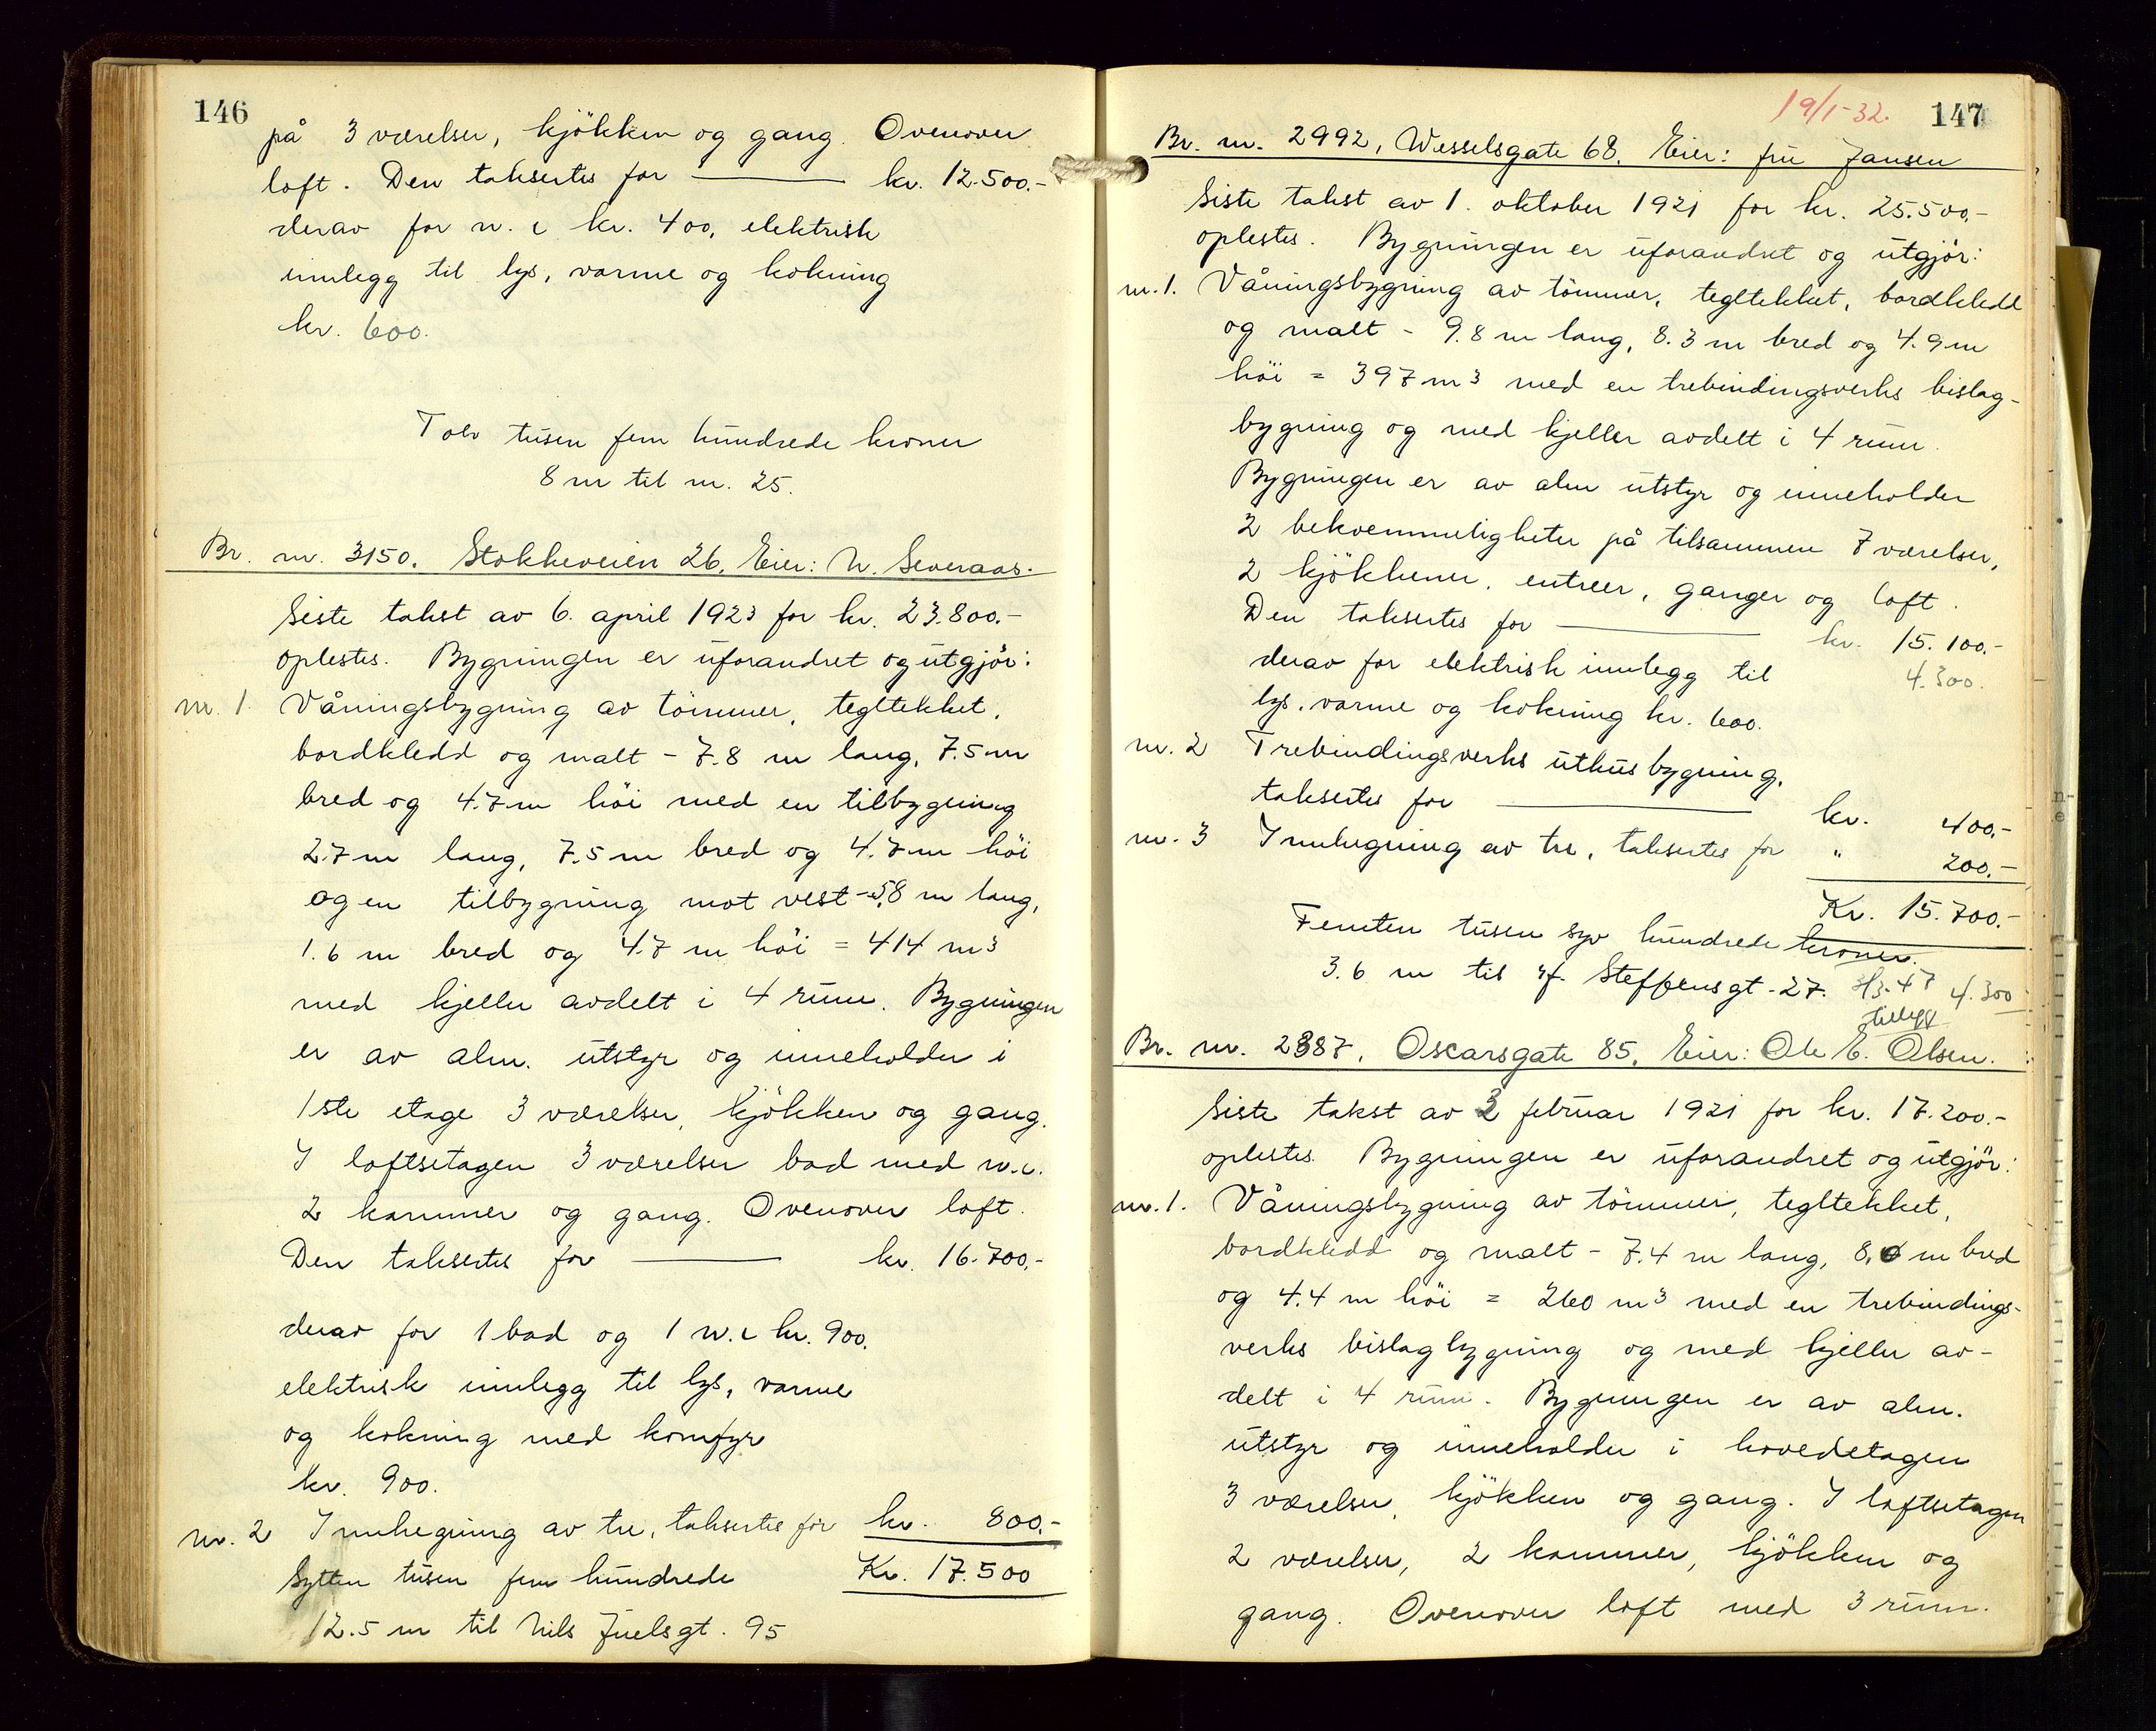 146
på 3 værelser, kjökken og gang. Ovenover
loft. Den taksertes for — kr. 12.500.-
derav for w.c kr. 400, elektrisk
innlegg til lys, varme og kokning
kr. 600.
Tolv tusen fem hundrede kroner
8 m til nr. 25.
Br. nr. 3150. Stokkeveien 26. Eier: N. Severaas.
Siste takst av 6. april 1923 for kr. 23.800.-
oplestes. Bygningen er uforandret og utgjör:
nr. 1 Våningsbygning av tömmer, tegltekket,
bordkledd og malt - 7.8 m lang, 7.5 m
bred og 4.7 m höi med en tilbygning
2.7 m lang, 7.5 m bred og 4.7 m höi
og en tilbygning mot vest - 5.8 m lang,
1.6 m bred og 4.7 m höi = 414 m3
med kjeller avdelt i 4 rum. Bygningen
er av alm. utstyr og inneholder i
1ste etage 3 værelser, kjökken og gang.
I loftsetagen 3 værelser bad med w.c.
2 kammer og gang. Ovenover loft.
Den taksertes for — kr. 16.700,-
derav for 1 bad og 1 w.c kr. 900,
elektrisk innlegg til lys, varme
og kokning med komfyr
kr. 900.
nr. 2 Innhegning av tre, taksertes for kr. 800.-
Sytten tusen fem hundrede Kr. 17.500
12.5 m til Nils Juelsgt. 95
19/1-32. 147
Br. nr. 2992, Wesselsgate 68. Eier: fru Jansen
Siste takst av 1. oktober 1921 for kr. 25.500,-
oplestes. Bygningen er uforandret og utgjör:
nr. 1. Våningsbygning av tömmer, tegltekket, bordkledd
og malt - 9.8 m lang, 8.3 m bred og 4.9 m
höi = 397 m3 med en trebindingsverks bislag-
bygning og med kjeller avdelt i 4 rum.
Bygningen er av alm utstyr og inneholder
2 bekvemmeligheter på tilsammen 7 værelser,
2 kjökkener, entreer, ganger og loft.
Den taksertes for — kr. 15.100.-
derav for elektrisk innlegg til 4.300.
lys, varme og kokning kr. 600.
nr. 2 Trebindingsverks uthusbygning,
taksertes for — kr. 400.-
nr. 3 Innhegning av tre, taksertes for " 200.-
Kr. 15.700.-
Femten tusen syv hundrede kroner.
3.6 m til Steffensgt. 27. 4.300
tillegg
Br. nr. 2887, Oscarsgate 85. Eier: Ole E. Olsen.
Siste takst av 2 februar 1921 for kr. 17.200.-
oplestes. Bygningen er uforandret og utgjör:
nr. 1. Våningsbygning av tömmer, tegltekket,
bordkledd og malt - 7.4 m lang, 8. m bred
og 4.4 m höi = 260 m3 med en trebindings-
verks bislagbygning og med kjeller av-
delt i 4 rum. Bygningen er av alm.
utstyr og inneholder i hovedetagen
3 værelser, kjökken og gang. I loftsetagen
2 værelser, 2 kammer, kjökken og
gang. Ovenover loft med 3 rum.